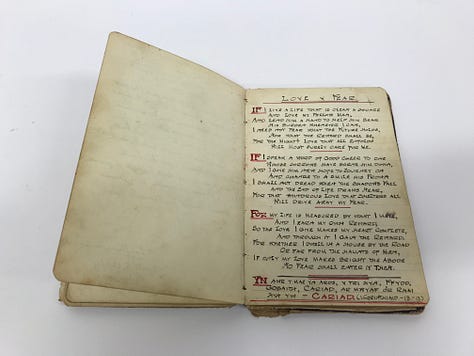 LOVE v FEAR
IF I LIVE A LIFE THAT IS CLEAN & SQUARE
AND LOVE MY FELLOW MAN,
AND LEND HIM A HAND TO HELP HIM BEAR
HIS BURDEN WHENEVER I CAN,
I NEED NOT FEAR WHAT THE FUTURE HOLDS,
NOR WHAT THE REWARD SHALL BE,
FOR THE MIGHTY LOVE THAT ALL ENFOLDS
WILL MOST SURELY CARE FOR ME.
IF I SPEAK A WORD OF GOOD CHEER TO ONE
WHOSE SORROWS HAVE BORNE HIM DOWN,
AND GIVE HIM NEW HOPE TO JOURNEY ON
AND CHANGE TO A SMILE HIS FROWN
I SHALL NOT DREAD WHEN THE SHADOWS FALL
AND THE END OF LIFE DRAWS NEAR,
FOR THAT WONDROUS LOVE THAT SHELTERS ALL
WILL DRIVE AWAY MY FEAR.
FOR MY LIFE IS MEASURED BY WHAT I
AND I EARN MY OWN REWARD,
SO THE LOVE I GIVE MAKES MY HEART COMPLETE,
AND THROUGH IT I GAIN THE REWARD.
FOR WHETHER I DWELL IN A HOUSE BY THE ROAD
OR FAR FROM THE HAUNTS OF MEN,
IF ONLY MY LOVE MAKES BRIGHT THE ABODE
NO FEAR SHALL ENTER IT THEN.
YN AWR Y MAE YN AROS, Y TRI HYN, FFYDD,
GOBAITH, CARIAD, A'R MWYAF O'R RHAI
HYN YW — CARIAD.